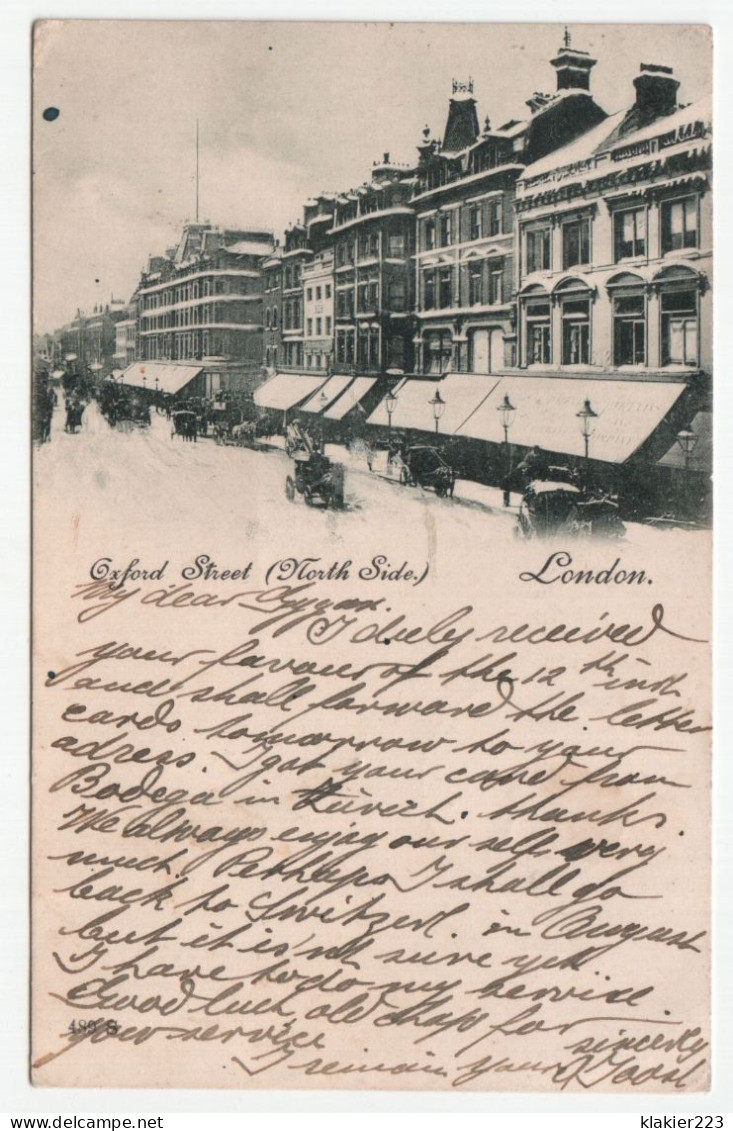 Oxford Street (North Side.) London.
My dear
I duely received
your favour of the 12th inst
and shall forward the letter
cards tomorrow to your
adress. I got your card from
Bodega in Zürich. thanks.
We always enjoy our self very
much. Perhaps I shall go
back to Switzerl. in August
but it is'nt sure yet.
I have to do my service.
Good luck old chap for
489 S
your service sincerely
I remain your
klakier223 delcampe.net